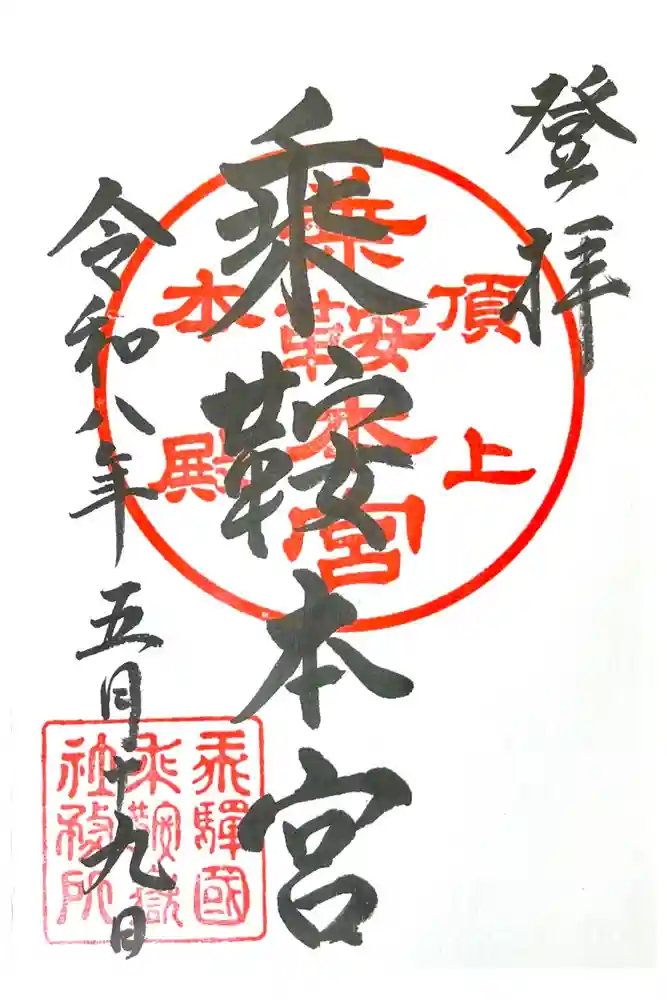 登拝
頂上
乗鞍本宮
乗鞍本宮
本殿
令和八年五月十九日
乗鞍嶽
社務所